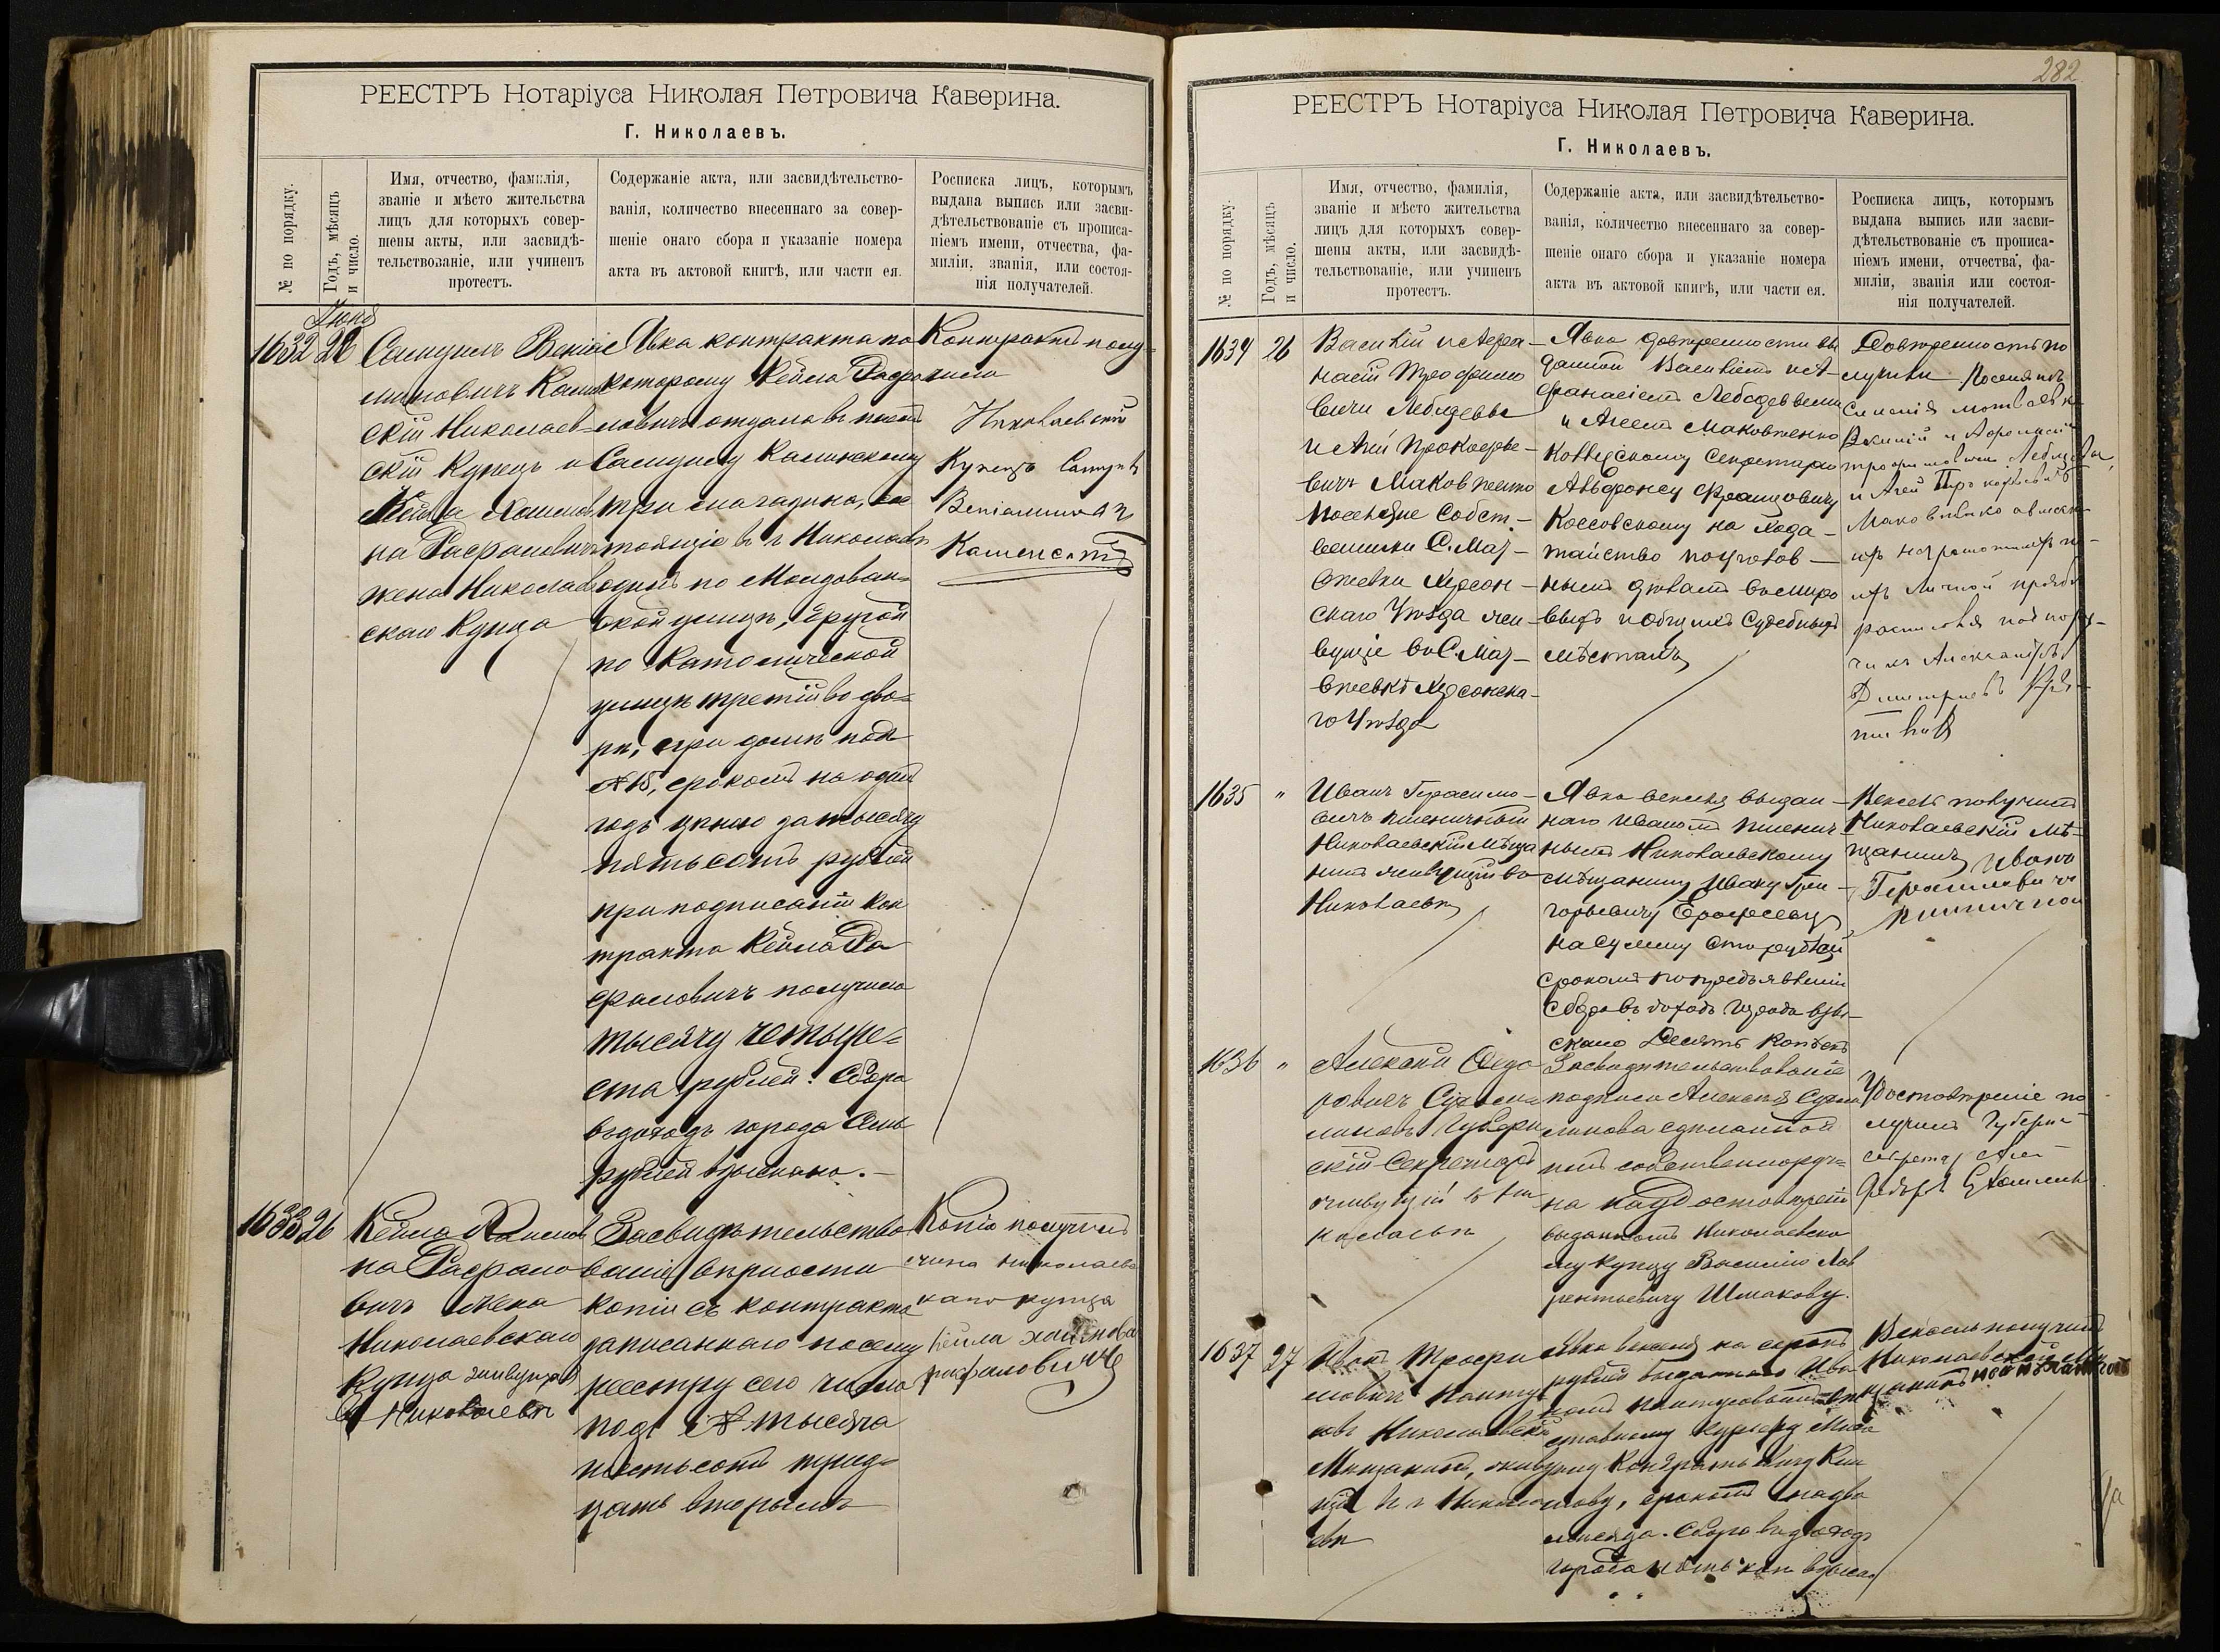 РЕЕСТРЪ Нотаріуса Николая Петровича Каверина.
Г. Николаевъ.
№ по порядку.
Годъ, мѣсяцъ
и число.
Имя, отчество, фамилія,
званіе и мѣсто жительства
лицъ для которыхъ совер-
шены акты, или засвидѣ-
тельствованіе, или учиненъ
протестъ.
Содержаніе акта, или засвидѣтельство-
ванія, количество внесеннаго за совер-
шеніе онаго сбора и указаніе номера
акта въ актовой книгѣ, или части ея.
Росписка лицъ, которымъ
выдана выпись или засви-
дѣтельствованіе съ прописа-
ніемъ имени, отчества, фа-
миліи, званія, или состоя-
нія получателей.
Іюня
1632
26
Самуилъ Веніа
миновичъ Камен
скій Николаев-
скій Купецъ и
Кейла Хаимов
на Рафаловичъ
жена Николаев
скаго Купца
Явка контракта по
которому Кейла Рафа
ловичъ отдала въ наемъ
Самуилу Каменскому
три магазина, со
стоящіе въ г. Николаевѣ
одинъ по Молдаван-
ской улицѣ, другой
по Католической
улицѣ третій во дво-
рѣ, при домѣ подъ
№ 15, срокомъ на одинъ
годъ цѣною за тысячу
пятьсотъ рублей
при подписаніи кон
тракта Кейла Ра
фаловичъ получила
тысячу четыре-
ста рублей. Сбора
въ доходъ города семь
рублей взыскано.
Контрактъ полу-
чилъ
Николаевскій
Купецъ Самуилъ
Веніаминовичъ
Каменскій
1633
26
Кейла Хаимов
на Рафало
вичъ жена
Николаевскаго
Купца живущая
въ Николаевѣ
Засвидѣтельство
ваніе вѣрности
копіи съ контракта
записаннаго по сему
реестру сего числа
подъ № тысяча
шестьсотъ трид-
цать вторымъ
Копію получила
жена николаевс
каго купца
Кейла Хаимова
рафаловичъ
282
РЕЕСТРЪ Нотаріуса Николая Петровича Каверина.
Г. Николаевъ.
№ по порядку.
Годъ, мѣсяцъ
и число.
Имя, отчество, фамилія,
званіе и мѣсто жительства
лицъ для которыхъ совер-
шены акты, или засвидѣ-
тельствованіе, или учиненъ
протестъ.
Содержаніе акта, или засвидѣтельство-
ванія, количество внесеннаго за совер-
шеніе онаго сбора и указаніе номера
акта въ актовой книгѣ, или части ея.
Росписка лицъ, которымъ
выдана выпись или засви-
дѣтельствованіе съ прописа-
ніемъ имени, отчества, фа-
миліи, званія или состоя-
нія получателей.
1634
26
Василій и Афа-
насій Трофимо
вичи Лебедевы
и Агей Прокофье-
вичъ Маковѣенко
Поселяне Собст-
венники С. Мат-
вѣевки Херсон-
скаго Уѣзда жи-
вущіе въ С. Мат-
вѣевкѣ Херсонска-
го Уѣзда
Явка довѣренности вы
данной Василіемъ и А-
фанасіемъ Лебедевыми
и Агеемъ Маковѣенко
Коллежскому Секретарю
Альфонсу Францовичу
Коссовскому на хода-
тайство по уголов-
нымъ дѣламъ въ миро
выхъ и общихъ Судебныхъ
мѣстахъ
Довѣренность по
лучили Поселяне
и Агей Прокофьевичъ
Александръ
1635
"
Иванъ Герасимо-
вичъ Пшеничный
Николаевскій Мѣща
нинъ живущій въ
Николаевѣ
Явка векселя выдан-
наго Иваномъ Пшенич-
нымъ Николаевскому
мѣщанину Ивану Гри-
горьевичу Ерофееву
на сумму сто рублей
срокомъ по предъявленіи
Сбора въ доходъ города взы-
скано Десять копѣекъ
Вексель получилъ
Николаевскій мѣ-
щанинъ Иванъ
Герасимовичъ
1636
"
Алексѣй Ѳедо
ровичъ Сухом-
линовъ Губерн
скій Секретарь
живущій въ Ни
колаевѣ
Засвидѣтельствованіе
подписи Алексѣя Сухом
линова сдѣланной
имъ собственноруч-
но на удостовѣреніи
выданномъ Николаевско
му купцу Василію Лав
рентьевичу Шмакову.
Удостовѣреніе по
лучилъ Губерн-
секретарь
1637
27
Иванъ Трофи
мовичъ
Николаевскій
Мѣщанинъ, живу
щій въ г. Никола
евѣ
Явка векселя на сорокъ
рублей выданнаго Ива
номъ
срокомъ на два
мѣсяца. Сбора въ доходъ
города пять коп. взыскано
Вексель получилъ
Николаевскій мѣ
щанинъ